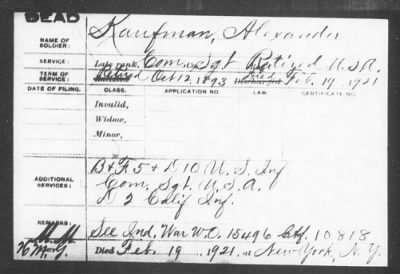 DEAD
NAME OF SOLDIER: Kaufman, Alexander
SERVICE: Late rank, Com. Sgt Retired U.S.A.
TERM OF SERVICE: Enlisted Retired Oct 12, 1893 Discharged Died Feb. 19, 1921
DATE OF FILING. CLASS. APPLICATION NO. LAW. CERTIFICATE NO.
Invalid,
Widow,
Minor,
ADDITIONAL SERVICES: B & F. 5 & D 10 U.S. Inf
Com. Sgt. U.S.A.
D 2 Calif Inf.
REMARKS: See Ind. War W.C. 15496 Ctf. 10818
Died Feb. 19, 1921, at New York, N.Y.